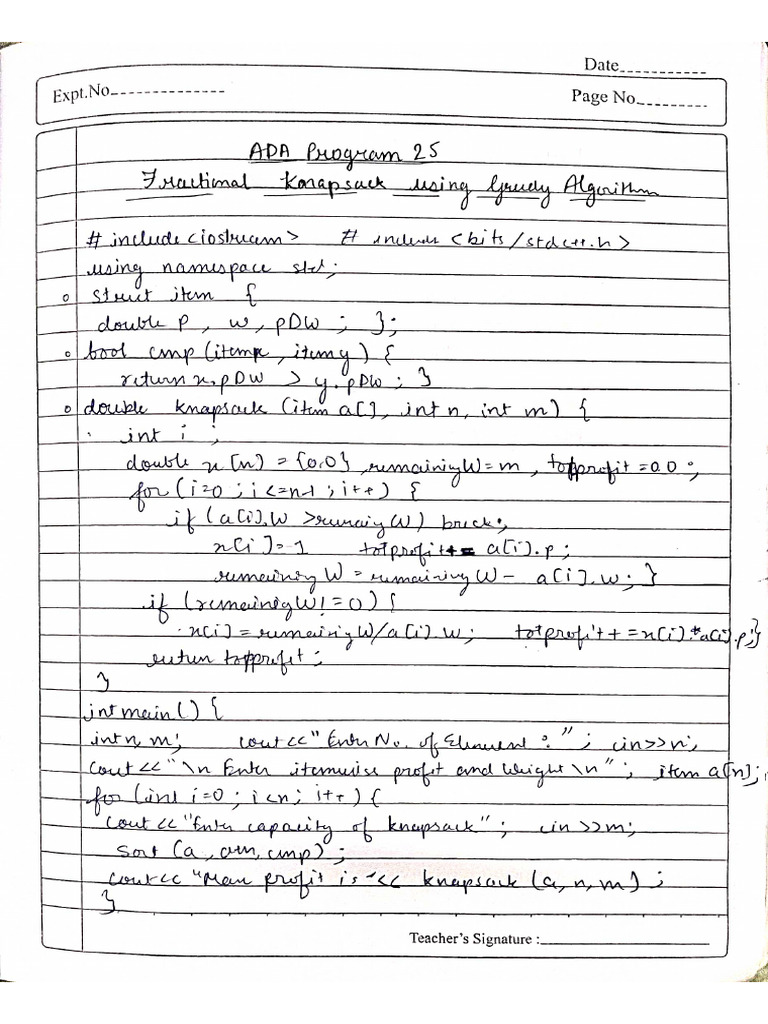 Date
Expt.No
Page No
ADA Program 25
Fractional Knapsack using Greedy Algorithm
# include <iostream> # include <bits/stdc++.h>
using namespace std;
struct item {
double p, w, pDW ; };
bool cmp (item x, item y) {
return x.pDW > y.pDW ; }
double knapsack (item a[], int n, int m) {
int i ;
double x[n] = {0.0}, remainingW = m , totprofit = 0.0 ;
for (i=0 ; i<=n-1 ; i++) {
if (a[i].W > remainigW) break;
x[i]=1 totprofit += a[i].p ;
remaining W = remaining W - a[i].w; }
if (remainingW != 0) {
x[i] = remainingW/a[i].w; totprofit += x[i] * a[i].p ;}
return totprofit ;
}
int main() {
int n, m; cout << "Enter No. of Element : " ; cin>>n;
cout << "\n Enter itemwise profit and Weight \n" ; item a[n];
for (int i=0 ; i<n ; i++) {
cout << "Enter capacity of knapsack" ; cin >> m;
sort (a, a+n, cmp) ;
cout << "Max profit is " << knapsack (a, n, m) ;
}
Teacher's Signature :